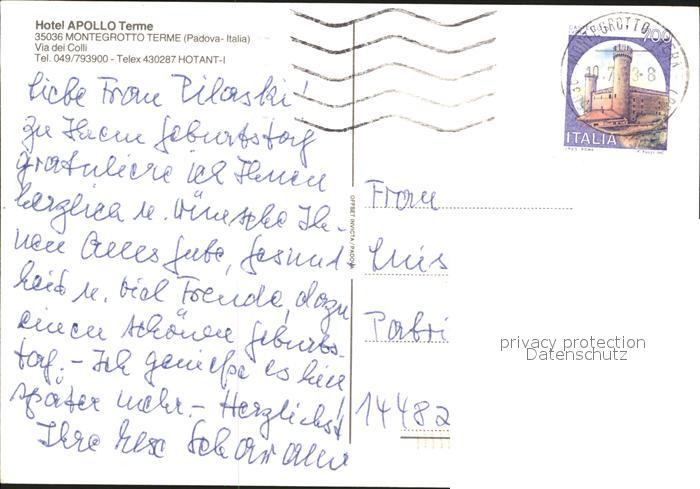 Hotel APOLLO Terme
35036 MONTEGROTTO TERME (Padova- Italia)
Via dei Colli
Tel. 049/793900 - Telex 430287 HOTANT-I
Liebe Frau Pilaski!
zu Ihrem Geburtstag
gratuliere ich Ihnen
herzlich u. wünsche Ih-
nen Alles Gute, Gesund-
heit u. viel Freude, dazu
einen schönen Geburts-
tag. - Ich genieße es hier
später mehr. - Herzlichst!
Ihre
OFFSET INVICTA/PADOVA
700
ITALIA
MONTEGROTTO TERME
Frau
Luis
Pabri
14482
privacy protection
Datenschutz